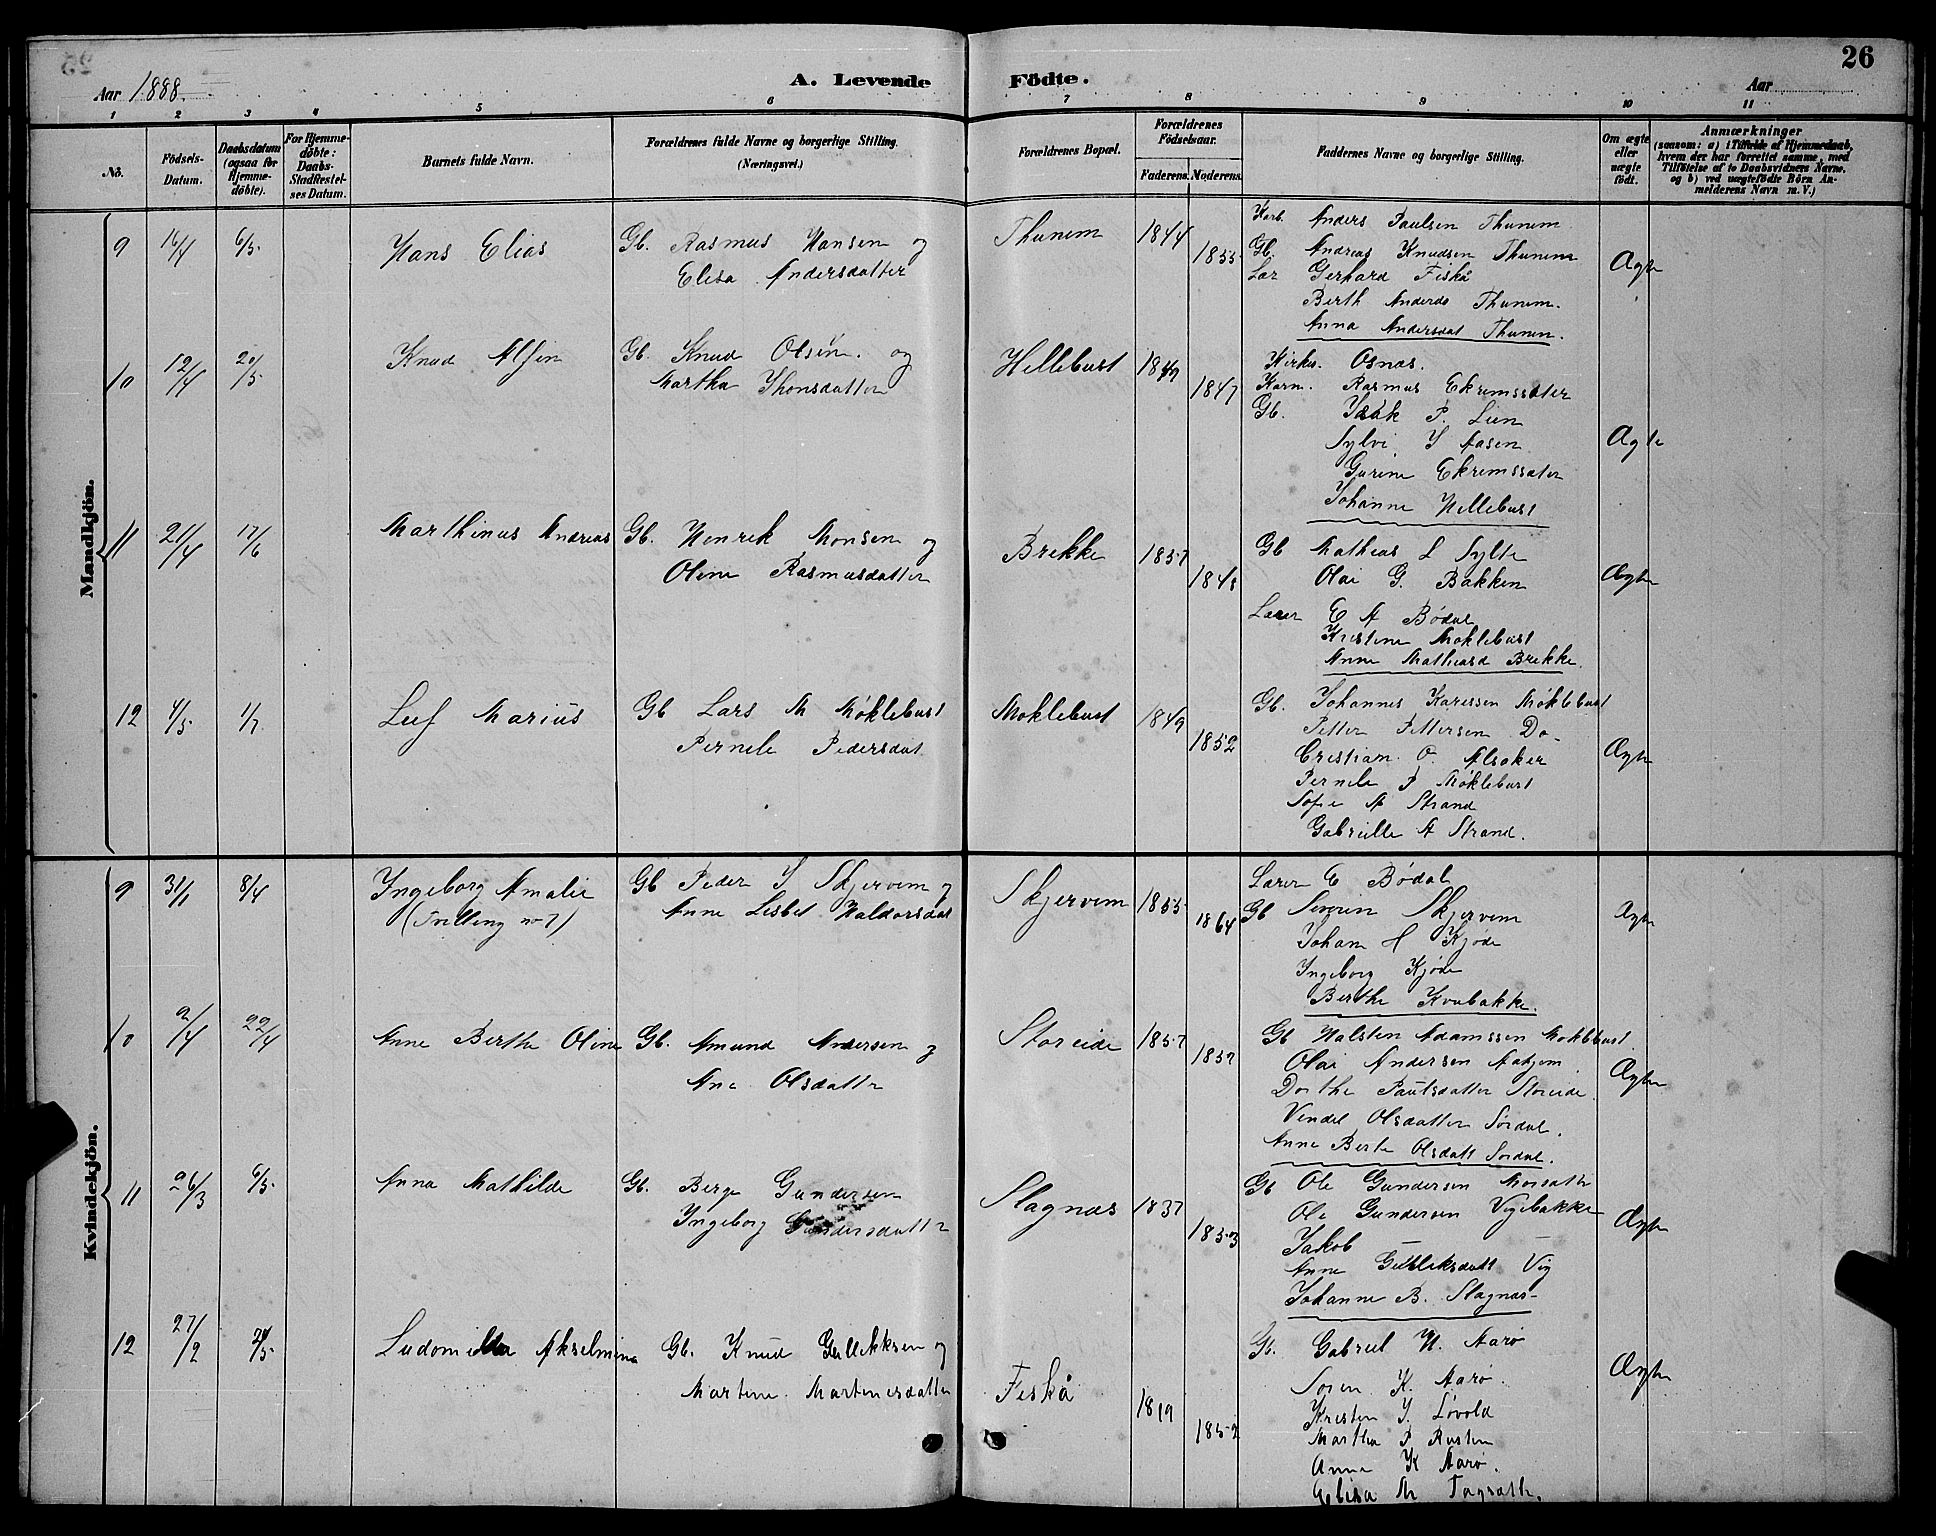 26
Aar 1888.
A. Levende Födte.
Aar
1 2 3 4 5 6 7 8 9 10 11
No.
Födsels-Datum.
Daabsdatum (ogsaa for Hjemme-döbte).
For Hjemme-döbte: Daabs-Stadfestel-ses Datum.
Barnets fulde Navn.
Forældrenes fulde Navne og borgerlige Stilling.
(Næringsvei.)
Forældrenes Bopæl.
Forældrenes Födselsaar.
Faderens. Moderens.
Faddernes Navne og borgerlige Stilling.
Om ægte eller uægte födt.
Anmærkninger
(saasom: a) i Tilfælde af Hjemmedaab,
hvem der har forrettet samme, med
Tilföielse af to Daabsvidners Navne.
og b) ved uægtefödte Börn An-
melderens Navn m. V.)
Mandkjön.
9 16/4 6/5 Hans Elias Gb. Rasmus Hansen og
Elisa Andersdatter
Thunem 1844 1855
Karb. Anders Paulsen Thunem
Gb. Andreas Knudsen Thunem
Lær Gerhard Fiskå
Berth Anderds Thunem.
Anna Andersdat Thunem.
Ægte
10 12/4 20/5 Knud Alfin Gb. Knud Olsen. og
Martha Ihonsdatter
Hellebust 1849 1847
Kirks. Osnæs.
Karn. Rasmus Ekremssæter
Gb. Isak P. Lien
Sylvi I Aasen
Gurine Ekremssæter
Johanne Hellebust
Ægte
11 21/4 17/6 Marthinus Andreas Gb. Henrik Monsen og
Oline Rasmusdatter
Brekke 1857 1848
Gb Mathias L Sylte
Olai G. Bakken
Lærer E A Bødal
Kristine Moklebust
Anne Mathiasd Brekke.
Ægte
12 4/5 1/7 Leif Marius Gb Lars M Møklebust
Pernele Pedersdat
Moklebust 1849 1852
Gb. Johannes Karessen Møklebust
Petter Pettersen Do-
Cristian O. Alsaker
Pernele P Møklebust
Sofie A Strand
Gabrielle A Strand.
Ægte
Kvindekjön.
9 31/1 8/4 Ingeborg Amalie
(Tvilling no 7)
Gb Peder I Skjervem og
Anne Lisbet Haldorsdat
Skjervem 1855 1864
Lærer E Bødal
Gb Severin Skjervem
Johan H Kjøde
Ingeborg Kjøde
Berthe Kvubakke.
Ægte
10 2/4 22/4 Anne Berthe Oline Gb. Amund Andersen og
Ane Olsdatter
Storeide 1857 1857
Gb Halsten Adamssen Moklebust.
Olai Andersen Aakjem
Dorthe Paulsdatter Storeide.
Vendel Olsdatter Sördal.
Anne Berte Olsdatt Sördal.
Ægte
11 26/3 6/5 Anna Mathilde Gb. Berge Gundersen
Ingeborg Gundersdatter
Slagnæs 1837 1853
Gb Ole Gundersen Morsæth
Ole Gundersen Vigebakke
Jakob
Anne Gulleksdatt Vig
Johanne B. Slagnæs-
Ægte
12 27/2 /5 Ludomilla Akselmine Gb. Knud Gullikksen og
Martine Martinesdatter
Feskå 1819 1852
Gb. Gabriel H. Aarø
Soren K. Aarø.
Kristen J. Løvold
Martha P Rusten
Anne K Aarø.
Elisa M
Ægte